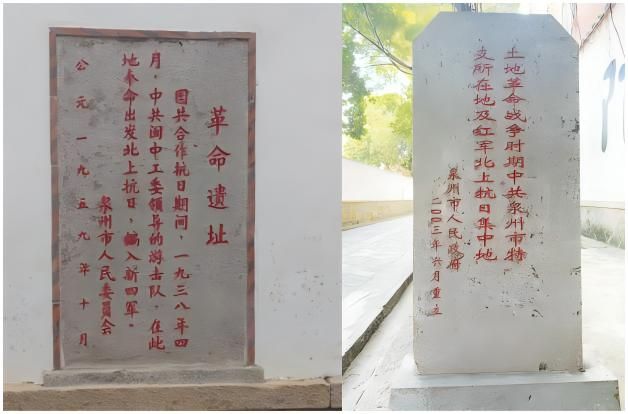 革命遗址
国共合作抗日期间，一九三八年四
月，中共闽中工委领导的游击队，在此
地奉命出发北上抗日，编入新四军。
泉州市人民委员会
公元一九五九年十月
土地革命战争时期中共泉州市特
支所在地及红军北上抗日集中地
泉州市人民政府
二〇〇三年六月重立